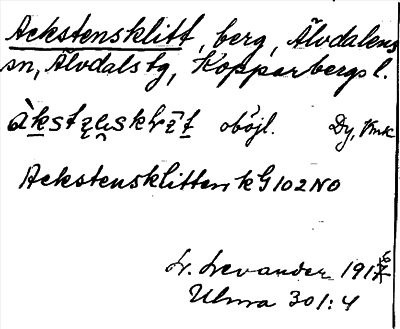 Ackstensklitt, berg, Älvdalens
sn, Älvdals tg, Kopparbergs l.
àkstęnsklı̄t oböjl. Dy,
Ackstensklitten kG 102 NO
L. Levander 1917
Ulma 301:4